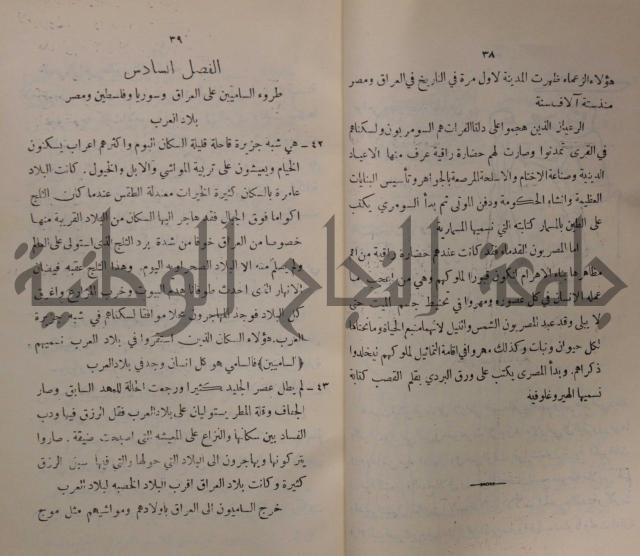 ٣٨
هؤلاء الزعماء ظهرت المدينة لاول مرة في التاريخ في العراق ومصر
منذ ستة آلاف سنة
الرعيان الذين هجموا على دلتا الفرات هم السومريون ولسكناهم
في القرى تمدنوا وصارت لهم حضارة راقية عرف منها الاعياد
الدينية وصناعة الاختام والاسلحة المرصعة بالجواهر وتأسيس البنايات
العظيمة وانشاء الحكومة ودفن الموتى ثم بدأ السومري يكتب
على الطين بالمسمار كتابته التي نسميها المسمارية
اما المصريون القدماء فقد كانت عندهم حضارة راقية من اهم
مظاهرها بناء الاهرام لتكون قبورا لملوكهم وهي من اعجب ما
عمله الانسان في كل عصوره ومهروا في تحنيط جسم الميت حتى
لا يبلى وقد عبد المصريون الشمس والنيل لانهما منبع الحياة وما نحتاجه
لكل حيوان ونبات وكذلك مهروا في اقامة التماثيل لملوكهم ليخلدوا
ذكراهم. وبدأ المصري يكتب على ورق البردي بقلم القصب كتابة
نسميها الهيروغلوفية
٣٩
الفصل السادس
طروء الساميين على العراق وسوريا وفلسطين ومصر
بلاد العرب
٤٢ – هي شبه جزيرة قاحلة قليلة السكان اليوم واكثرهم اعراب يسكنون
الخيام ويعيشون على تربية المواشي والابل والخيول. كانت البلاد
عامرة بالسكان كثيرة الخيرات معتدلة الطقس عندما كان الثلج
اكواما فوق الجبال فقد هاجر اليها السكان من البلاد القريبة منها
خصوصا من العراق خوفا من شدة برد الثلج الذي استولى على العالم
ولم يسلم منه الا البلاد الصحراويه اليوم. وهذا الثلج عقبه فيضان
الانهار الذي احدث طوفانا هدم البيوت وخرب المزارع واغرق
كل البلاد فوجد المهاجرون محلا موافقا لسكناهم في شبه جزيرة
العرب. هؤلاء السكان الذين استقروا في بلاد العرب نسميهم
(الساميين) فالسامي هو كل انسان وجد في بلاد العرب
٤٣ – لم يطل عصر الجليد كثيرا ورجعت الحالة للعهد السابق وصار
الجفاف وقلة المطر يستوليان على بلاد العرب فقل الرزق فيها ودب
الفساد بين سكانها والنزاع على المعيشه التي اصبحت ضيقة. صاروا
يتركونها ويهاجرون الى البلاد التي حولها والتي فيها سبل الرزق
كثيرة وكانت بلاد العراق اقرب البلاد الخصبه لبلاد العرب
خرج الساميون الى العراق باولادهم ومواشيهم مثل موج
جامعة النجاح الوطنية